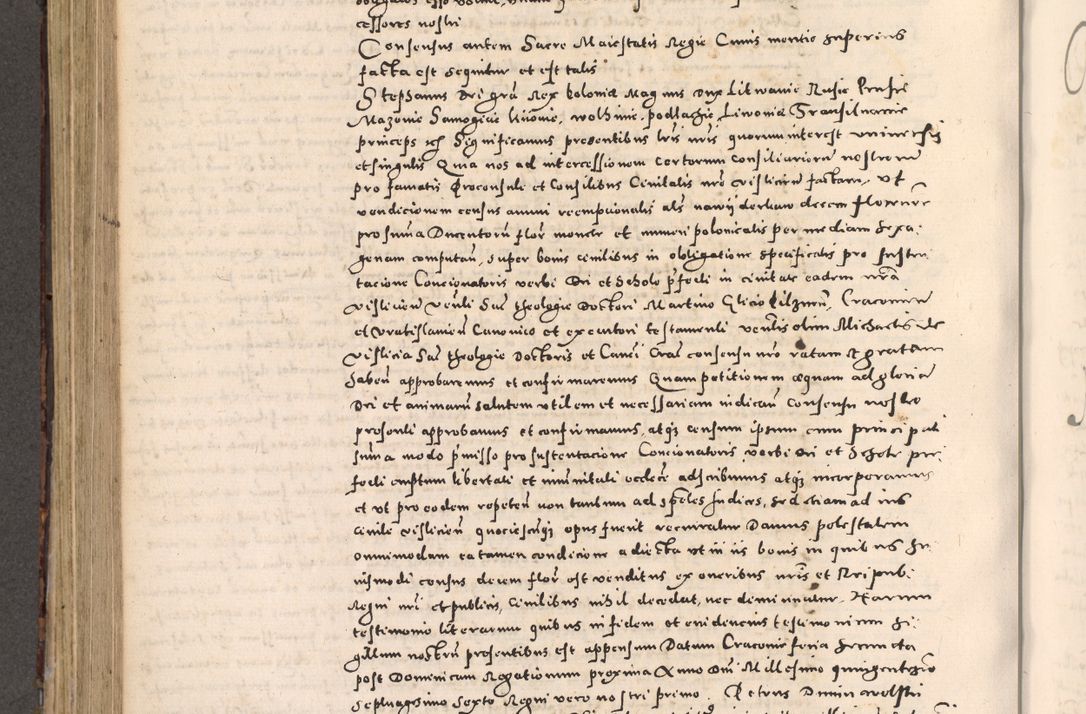 cessores nostri
Consensus autem Sacre Maiestatis Regie Cuius mentio superius
facta est sequitur et est talis
Stephanus Dei gra Rex Polonie Magnus Dux Litwanie Russie Prussie
Mazovie Samogicie kiiovie, wolhinie, podlachie, Livonie Transilvanie
princeps etc Significamus presentibus lris nris quorum interest universis
et singulis Quia nos ad intercessionem certorum Consiliariorum nostrorum
pro famatis Proconsule et Consilibus Civitatis nre Visliciem factam, ut
vendicionem census annui reempcionalis als na wyderkaw decem florenorum
pro summa Ducentorum flor monete et numeri polonicalis per mediam sexa:
genam computan, super bonis civilibus in obligatione specificatis pro susten
tacione Concionatoris verbi Dei et Schole pfecti in civitate eadem nra
Visliciem Venli Sac theologie Doctori Martino Glicio Pilznen, Cracovien
et Vratislavien Canonico et executori testamenti venlis olim Michaelis de
Vislicia Sac theologie Doctoris et Canci Crac consensu nro ratam et gratam
habere approbaremus et confirmaremus Quam petitionem equam ad gloriam
Dei et animarum salutem utilem et necessariam iudican Consensu nostro
presenti approbamus et confirmamus, atqz censum ipsum cum principali
summa modo pmisso pro sustentacione Concionatoris verbi Dei et Schole pre
fecti emptum libertati et immunitati eccle adscribimus atqz incorporamus
et ut pro eodem repeten non tantum ad spirles Judices, sed etiam ad ius
Civile Visliciem quociescunqz opus fuerit recurratur Damus potestatem
omnimodam ea tamen condicione adiecta ut in iis bonis in quibus hu
iusmodi census decem flor est venditus ex oneribus nris et Reipub:
Regni nri et publicis, Civilibus nihil decedat, nec diminuatur. Harum
testimonio literarum quibus in fidem et evidencius testimonium si
gillum nostrum presentibus est appensum Datum Cracovie feria
post Dominicam Rogationum proxima Anno Dni Millesimo quingentesimo
Septuagesimo Sexto Regni vero nostri primo. Petrus Dunin wolski